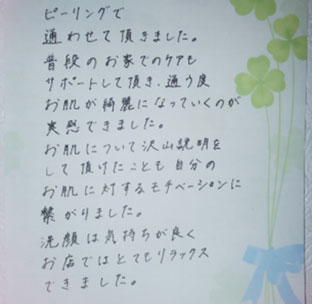 ピーリングで
通わせて頂きました。
普段のお家でのケアも
サポートして頂き、通う度
お肌が綺麗になっていくのが
実感できました。
お肌について沢山説明を
して頂けたことも自分の
お肌に対するモチベーションに
繋がりました。
洗顔は気持ちが良く
お店ではとてもリラックス
できました。